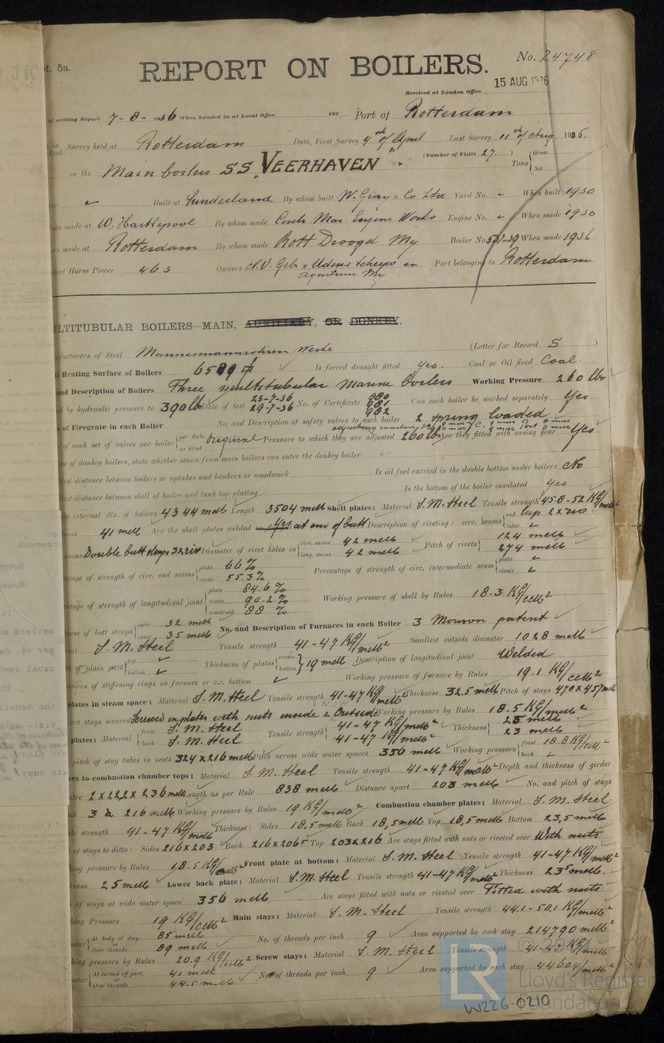 t. 5a.
No. 24748
REPORT ON BOILERS.
Received at London Office 15 AUG 1936
of writing Report 7-8-1936 When handed in at Local Office 193 Port of Rotterdam
Survey held at Rotterdam Date, First Survey 4th of April Last Survey 11th of Aug 1936
on the Main boilers S.S. VEERHAVEN (Number of Visits 27.) Tons Gross Net
Built at Sunderland By whom built W. Gray & Co Ltd Yard No. When built 1930
made at W. Hartlepool By whom made Centr. Mar. Engine Works Engine No. When made 1930
made at Rotterdam By whom made Rott Droogd My Boiler No. When made 1936
Horse Power 463 Owners N.V. Port belonging to Rotterdam
LTITUBULAR BOILERS—MAIN, AUXILIARY, OR DONKEY.
facturers of Steel Mannesmannröhren Werke (Letter for Record S )
Heating Surface of Boilers Is forced draught fitted yes. Coal or Oil fired Coal
and Description of Boilers Three multitubular Marine boilers Working Pressure 260 lbs
by hydraulic pressure to 390 lb Date of test 23-7-36 29-7-36 No. of Certificate 980 981 982 Can each boiler be worked separately Yes
of Firegrate in each Boiler No. and Description of safety valves to each boiler 2 spring loaded
of each set of valves per boiler original Pressure to which they are adjusted 260 lb Are they fitted with easing gear Yes
of donkey boilers, state whether steam from main boilers can enter the donkey boiler
distance between boilers or uptakes and bunkers or woodwork Is oil fuel carried in the double bottom under boilers No
distance between shell of boiler and tank top plating Is the bottom of the boiler insulated yes
internal dia. of boilers 4344 m Length 3504 m Shell plates: Material S.M. Steel Tensile strength 45.8-52 KG/
41 m Are the shell plates welded at one of butt Description of riveting: circ. seams end lap 2 x riv inter.
Double butt straps 3x riv Diameter of rivet holes in circ. seams 42 m long. seams 42 m Pitch of rivets 124 m 274 m
tage of strength of circ. end seams plate 66% rivets 55.3% Percentage of strength of circ. intermediate seam plate rivets
tage of strength of longitudinal joint plate 84.6% rivets 90.2% combined 88% Working pressure of shell by Rules 18.3 KG/
of butt straps outer 32 m inner 35 m No. and Description of Furnaces in each Boiler 3 Morison patent
S.M. Steel Tensile strength 41-47 KG/ Smallest outside diameter 1028 m
of plain part top bottom Thickness of plates crown bottom 19 m Description of longitudinal joint Welded
of stiffening rings on furnace or c.c. bottom Working pressure of furnace by Rules 19.1 KG/
plates in steam space: Material S.M. Steel Tensile strength 41-47 KG/ Thickness 32.5 m Pitch of stays
are stays secured Screwed in plates with nuts inside & outside Working pressure by Rules 18.5 KG/
plates: Material front S.M. Steel back S.M. Steel Tensile strength 41-47 KG/ 41-47 KG/ Thickness 23 m
pitch of stay tubes in nests 324 x 216 m Pitch across wide water spaces 356 m Working pressure front 18.8 KG/ back
ers to combustion chamber tops: Material S.M. Steel Tensile strength 41-47 KG/ Depth and thickness of girder
Length as per Rule 838 m Distance apart 203 m No. and pitch of stays
3 à 216 m Working pressure by Rules 19 KG/ Combustion chamber plates: Material S.M. Steel
strength 41-47 KG/ Thickness: Sides 18.5 m Back 18.5 m Top 18.5 m Bottom 23.5 m
of stays to ditto: Sides 216 x 203 Back Top 203 x 216 Are stays fitted with nuts or riveted over With nuts
ing pressure by Rules 18.5 KG/ Front plate at bottom: Material S.M. Steel Tensile strength 41-47 KG/
25 m Lower back plate: Material S.M. Steel Tensile strength 41-47 KG/ Thickness 23 m
of stays at wide water space 356 m Are stays fitted with nuts or riveted over Fitted with nuts
ing Pressure 19 KG/ Main stays: Material S.M. Steel Tensile strength 44.1-50.1 KG/
At body of stay, or Over threads 85 m 89 m No. of threads per inch 9 Area supported by each stay 214790 m
ing pressure by Rules 20.9 KG/ Screw stays: Material S.M. Steel Tensile strength 41-47 KG/
At turned off part, or Over threads 41 m 44.5 m No. of threads per inch 9 Area supported by each stay
LR
Lloyd's Register
Foundation
W226-0210